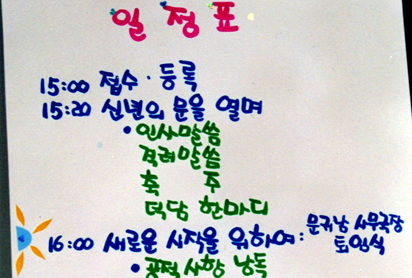 일정표
15:00 접수·등록
15:20 신년의 문을 열며
•인사말씀
격려말씀
축 주
덕담 한마디
16:00 새로운 시작을 위하여: 문귀남 사무국장
퇴임식
•공적사항 낭독